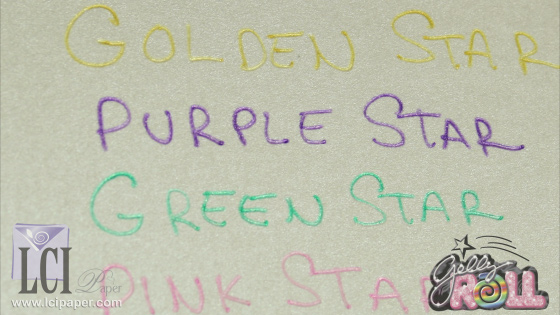 GOLDEN STAR
PURPLE STAR
GREEN STAR
PINK STAR
LCI Paper
www.lcipaper.com
Gelly ROLL